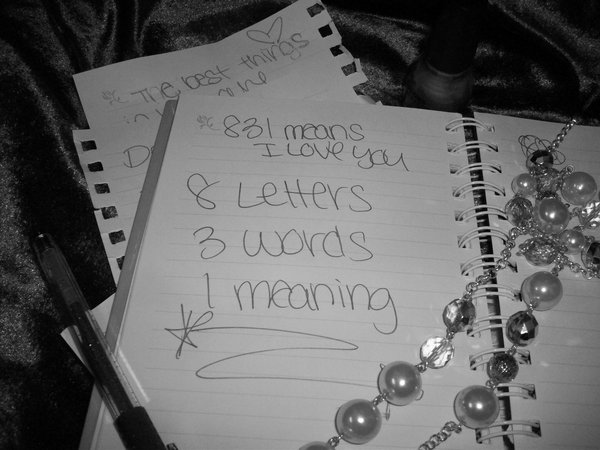 The best things
in
831 means
I Love you
8 Letters
3 words
1 meaning